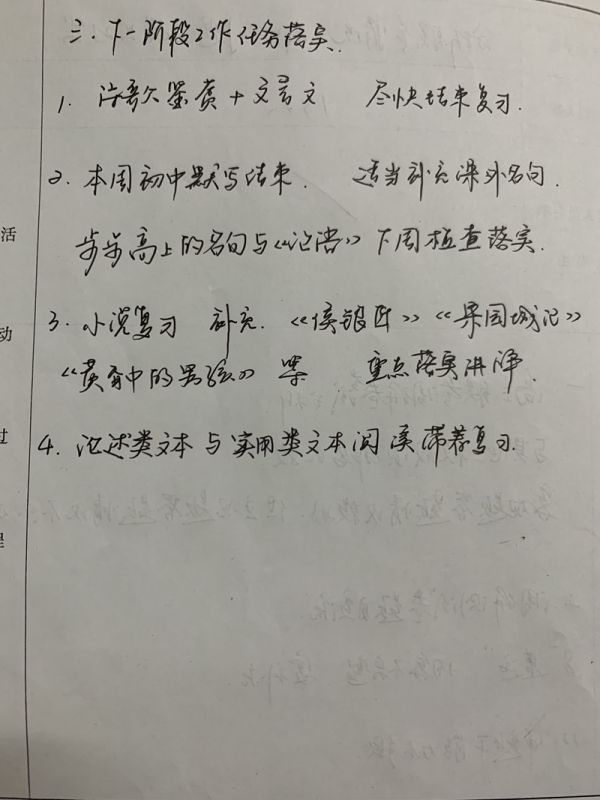 三、下一阶段工作任务落实.
1. 诗歌鉴赏+文言文 尽快结束复习.
2. 本周初中默写结束. 适当补充课外名句.
步步高上的名句与《论语》下周检查落实.
3. 小说复习 补充.《侯银匠》《果园城记》
《黄昏中的男孩》等 重点落实讲评.
4. 论述类文本与实用类文本阅读滞荐复习.
活
动
过
程